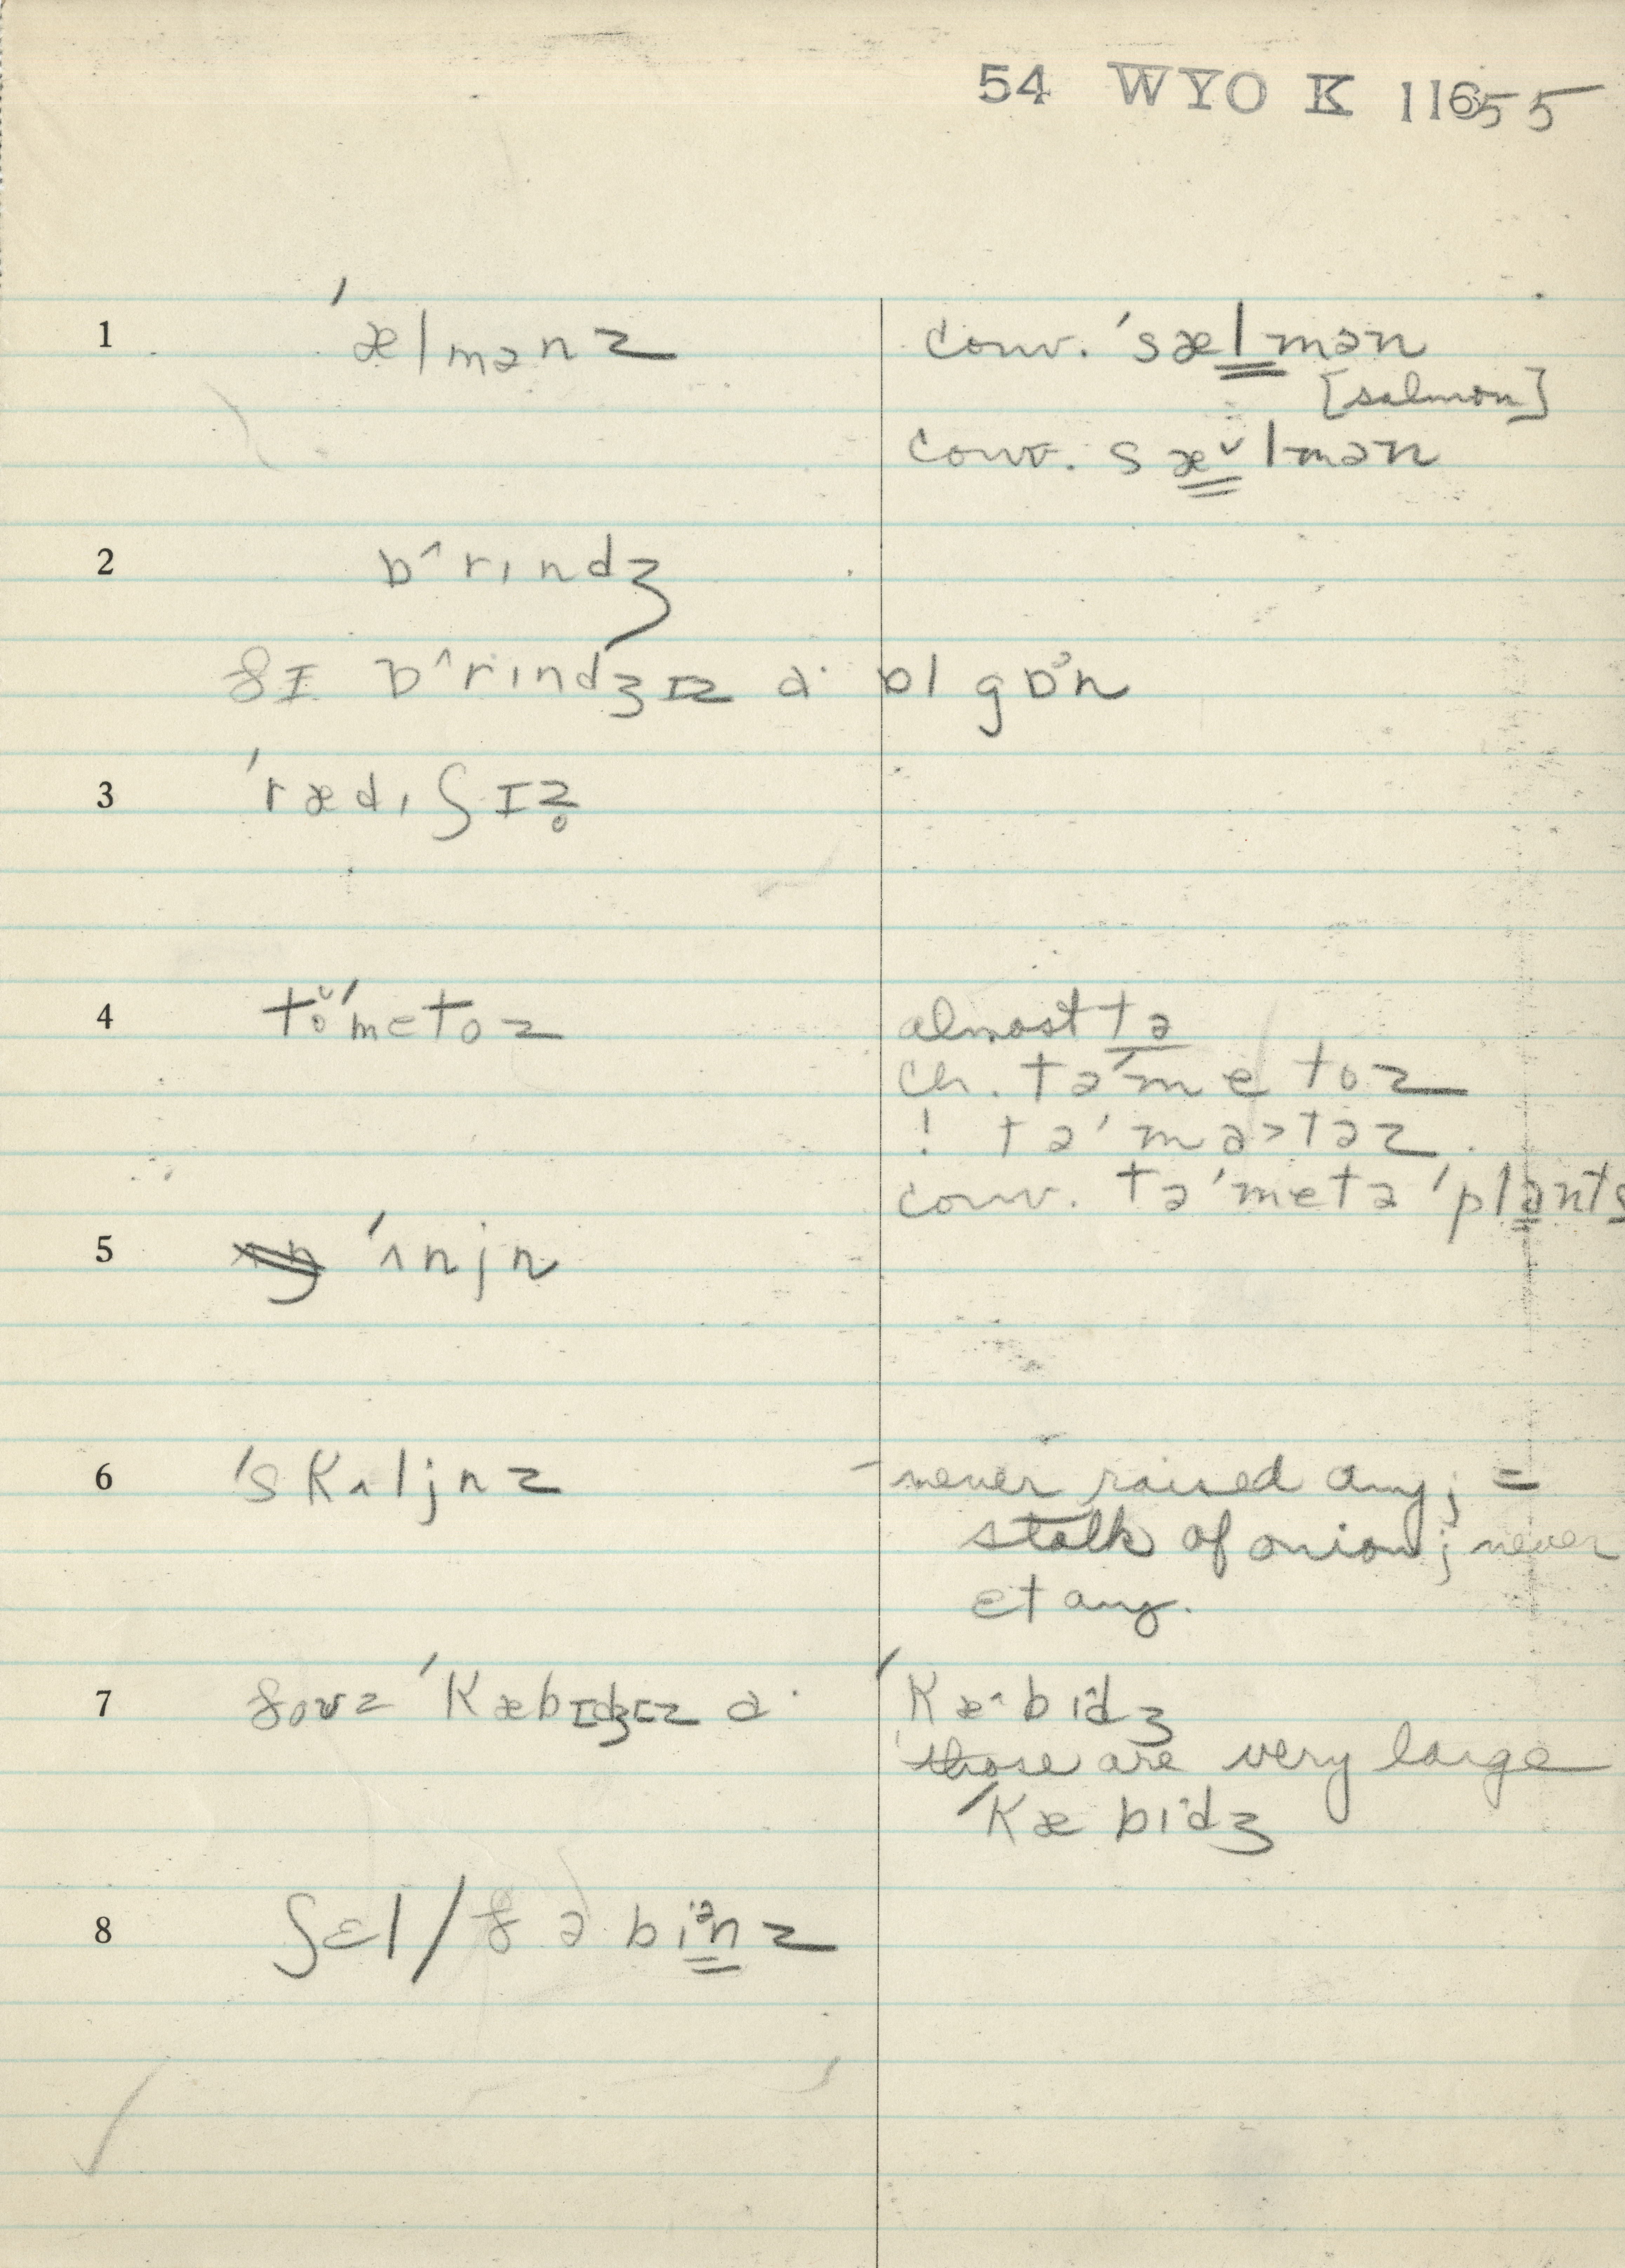 54 WYO K 11655
1 ˈælmənz conv. ˈsælmən
[salmon]
conv. sæ˅lmən
2 ɒ^rɪndʒ
ðɪ ɒ^rɪndʒɪz a· ɒl gɒᵊn
3 ˈrædɪʃɪz̥
4 to̥˅ˈmetoz almost tə
ch. təˈmetoz
! təˈma>təz.
conv. təˈmetə ˈplants
5 ˈʌnjn
6 ˈskʌljnz - never raised any; =
stalk of onion; never
et any.
7 ðouz ˈkæbɪdʒɪz a· ˈkæ^bɪdʒ
those are very large
ˈkæbɪdʒ
8 ʃɛl/ðə biᵊnz